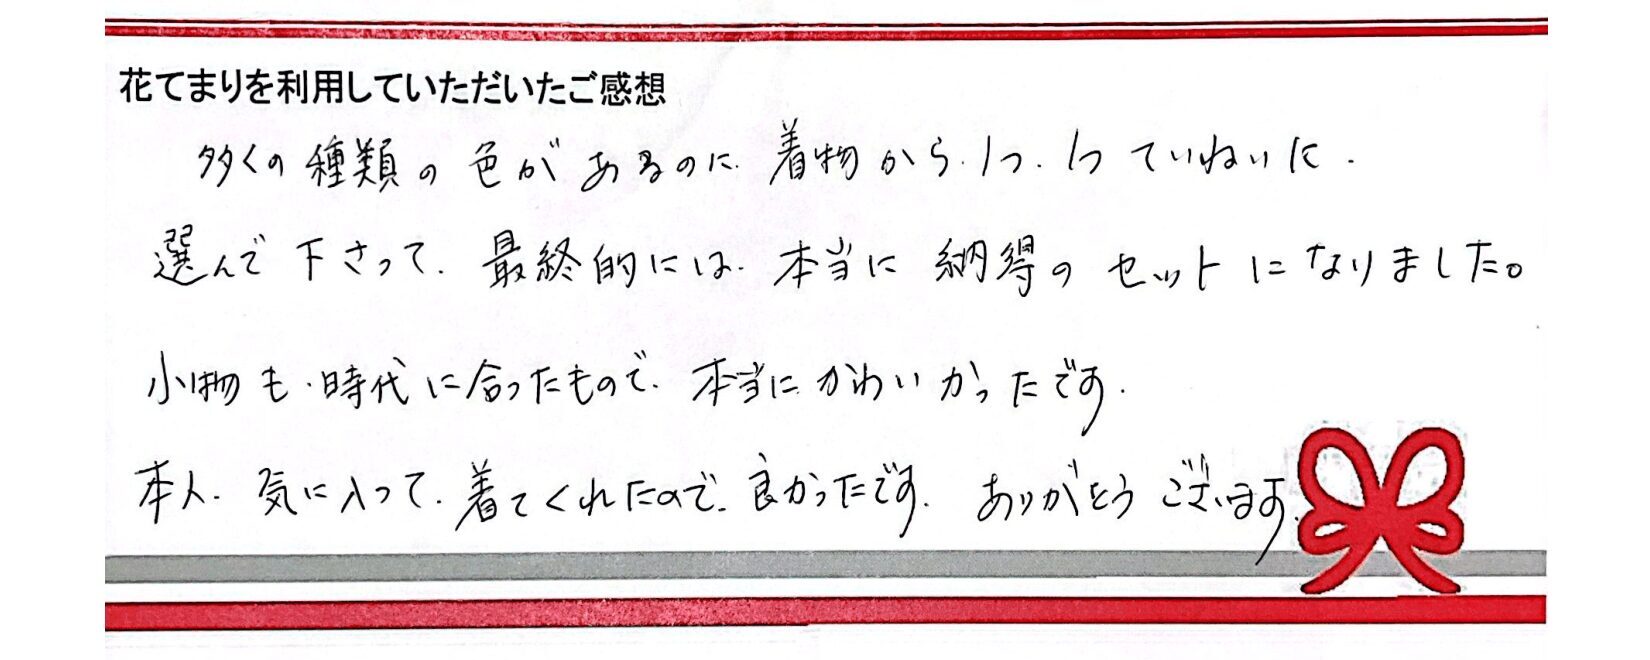 花てまりを利用していただいたご感想
多くの種類の色があるのに、着物から、1つ、1つていねいに、
選んで下さって、最終的には、本当に納得のセットになりました。
小物も、時代に合ったもので、本当にかわいかったです。
本人、気に入って、着てくれたので、良かったです。ありがとうございます。